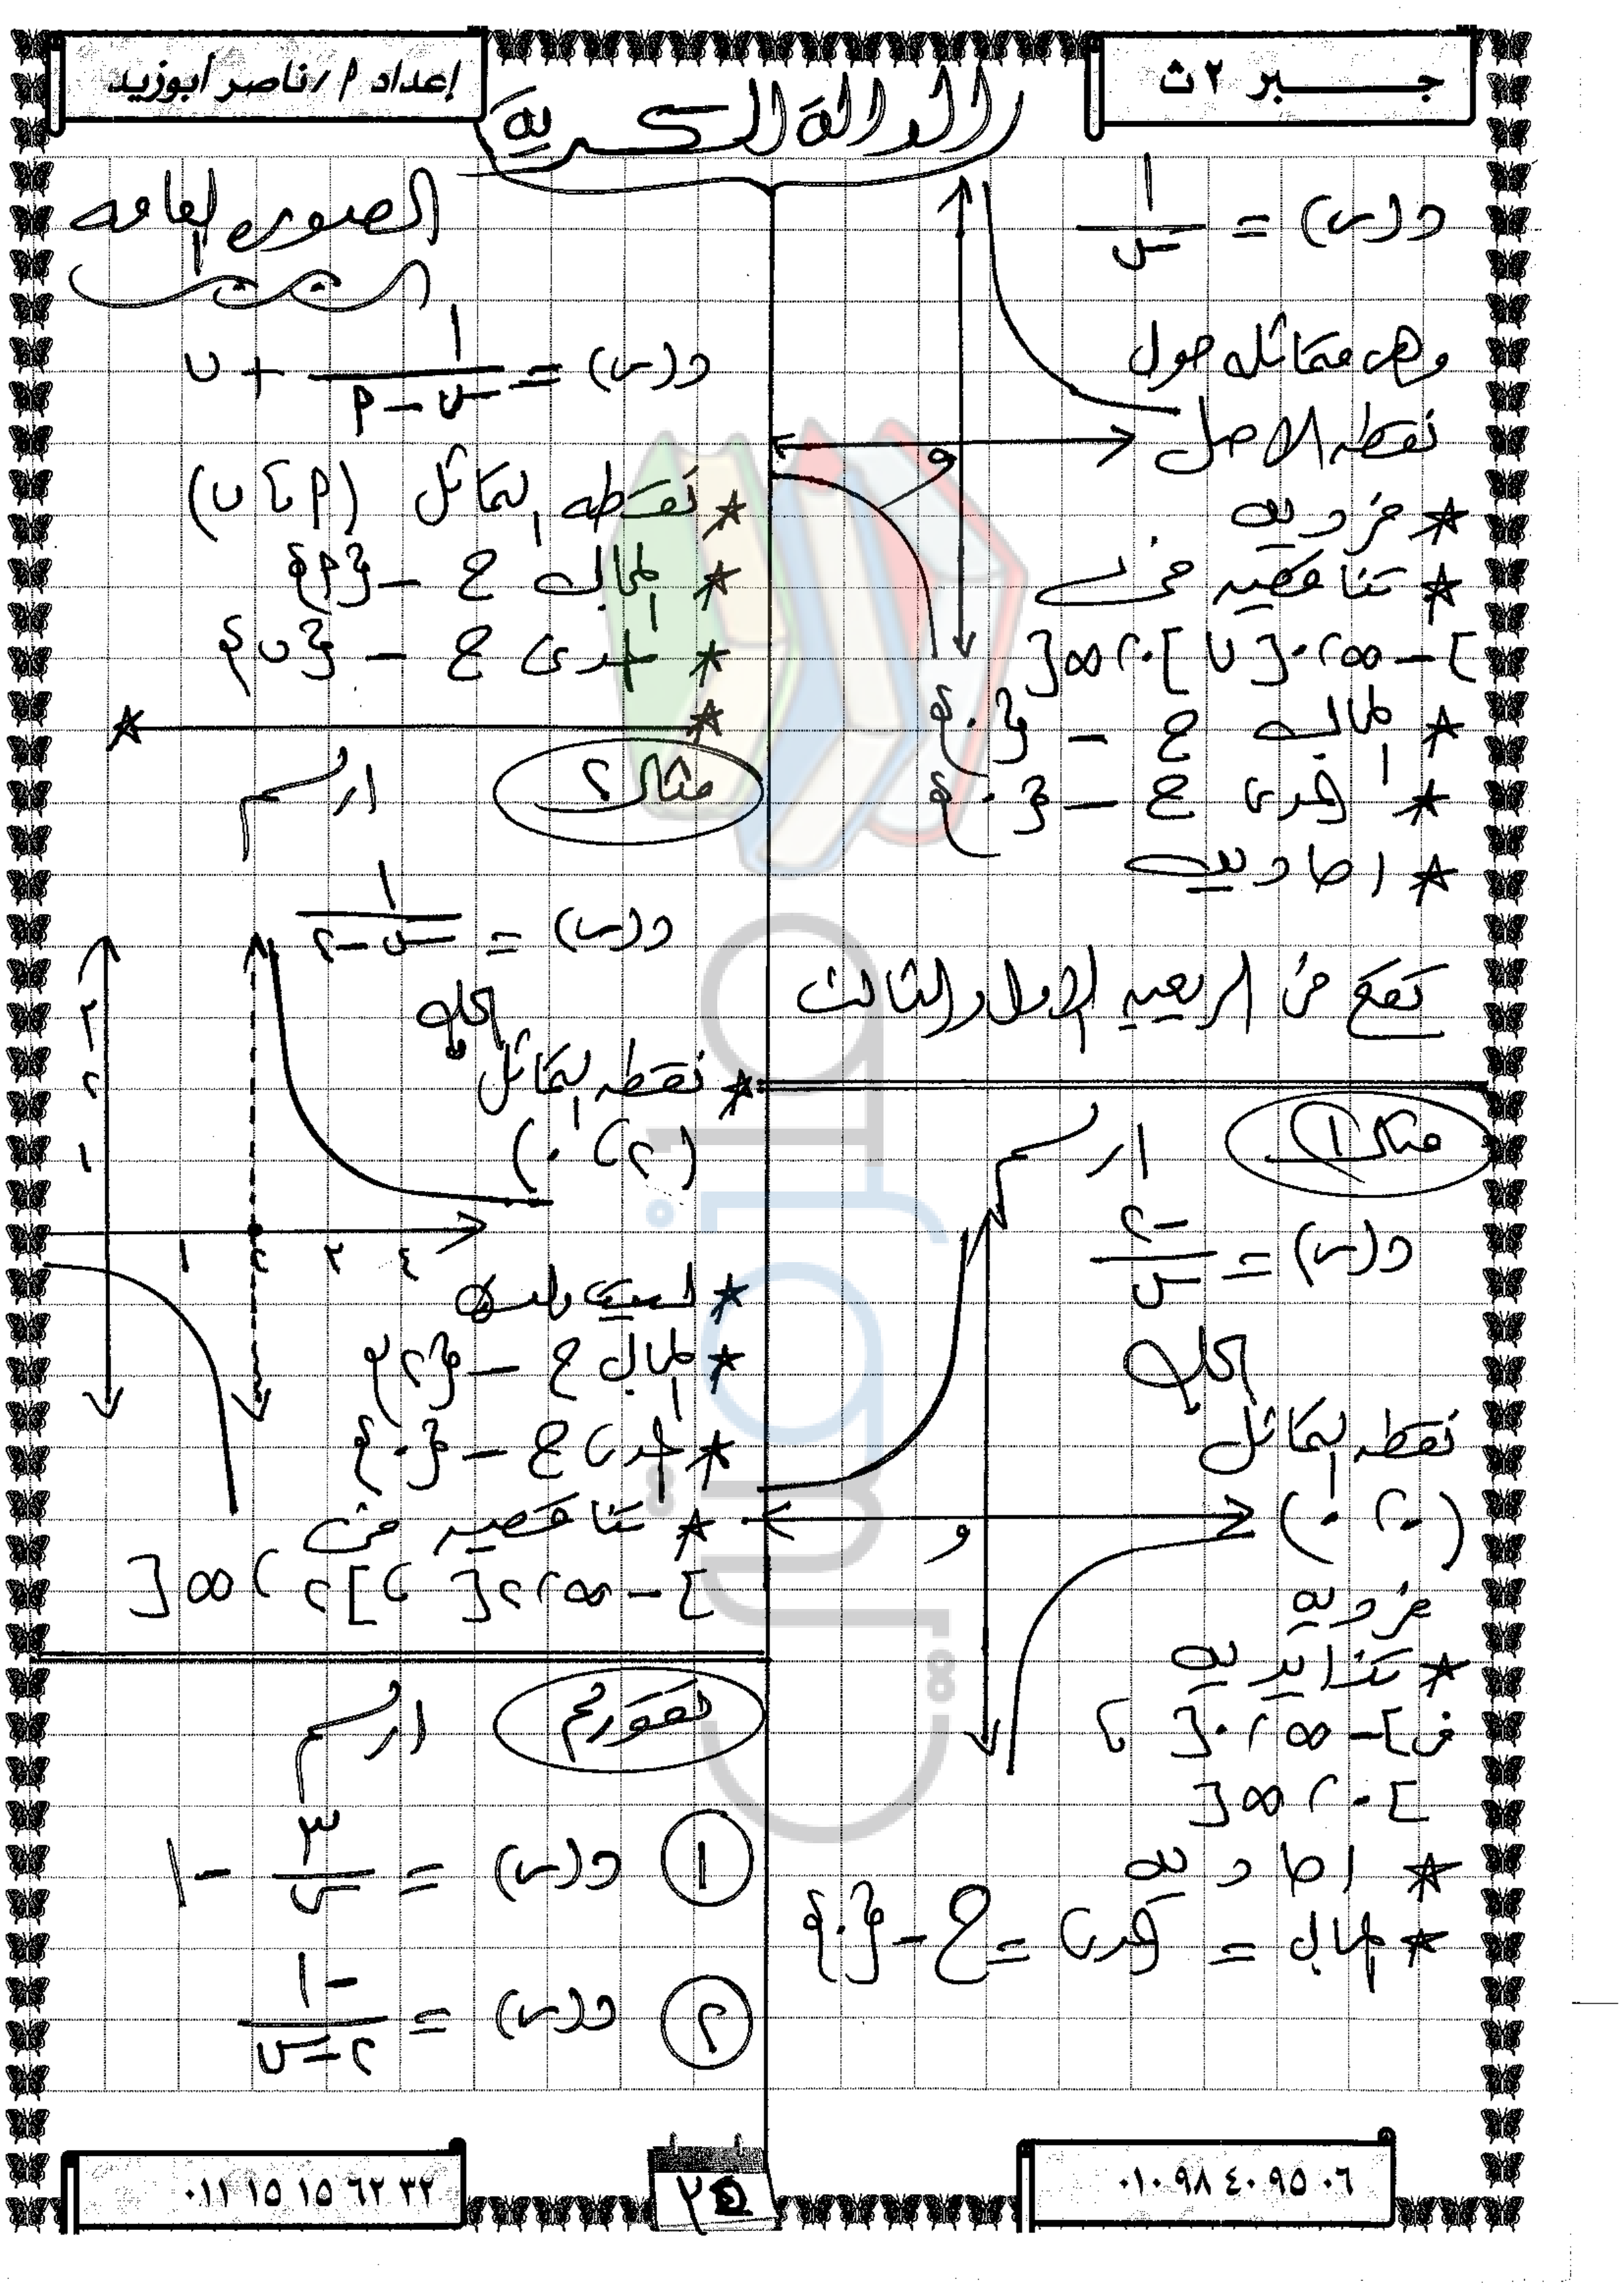 جبر ٢ث
إعداد أ/ناصر أبوزيد
الدالة الكسرية
د(س) = ١/س
وهى متماثله حول
نقطه الاصل
* فرديه
* تناقصيه فى
]-∞، ٠[ ∪ ]٠، ∞[
* المجال ح - {٠}
* المدى ح - {٠}
* احاديه
تقع فى الربعين الاول والثالث
و
مثال ١ ارسم
د(س) = -٢/س
الحل
نقطه التماثل
(٠، ٠)
فرديه
* تزايديه
فى ]-∞، ٠[ ،
]٠، ∞[
* احاديه
* المجال = المدى = ح - {٠}
و
الصوره العامه
د(س) = ١/(س - أ) + ب
* نقطه التماثل (أ، ب)
* المجال ح - {أ}
* المدى ح - {ب}
*
مثال ٢ ارسم
د(س) = ١/(س - ٢)
الحل
* نقطه التماثل
(٢، ٠)
٣
٢
١
١ ٢ ٣ ٤
* المجال ح - {٢}
* المدى ح - {٠}
* تناقصيه فى
]-∞، ٢[ ، ]٢، ∞[
ارسم
① د(س) = ٣/س - ١
② د(س) = -١/(٢ - س)
٠١٠ ٩٨ ٤٠ ٩٥ ٠٦
٠١١ ١٥ ١٥ ٦٢ ٣٢